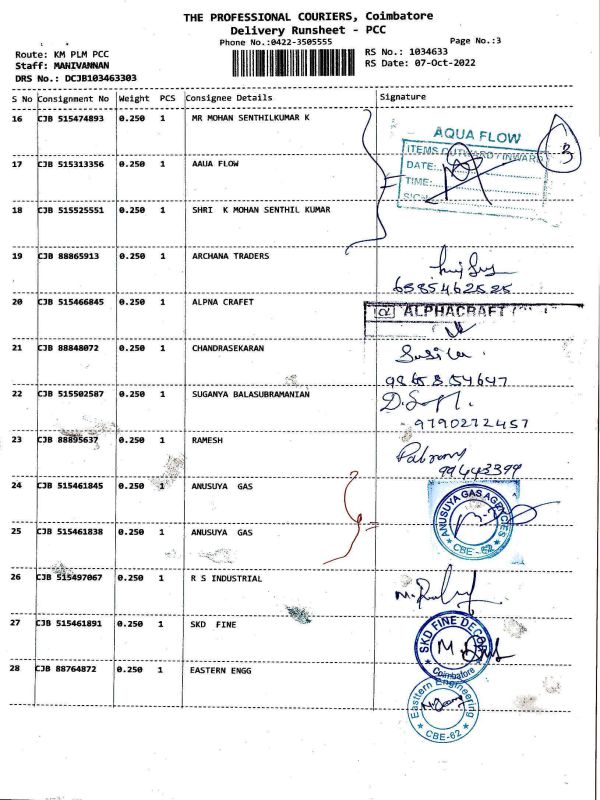 THE PROFESSIONAL COURIERS, Coimbatore
Delivery Runsheet - PCC
Phone No.:0422-3505555 Page No.:3
Route: KM PLM PCC RS No.: 1034633
Staff: MANIVANNAN RS Date: 07-Oct-2022
DRS No.: DCJB103463303
S No Consignment No Weight PCS Consignee Details Signature
16 CJB 515474893 0.250 1 MR MOHAN SENTHILKUMAR K
AQUA FLOW
ITEMS OUTWARD / INWARD
3
17 CJB 515313356 0.250 1 AAUA FLOW
DATE:
TIME:
SIGN
18 CJB 515525551 0.250 1 SHRI K MOHAN SENTHIL KUMAR
19 CJB 88865913 0.250 1 ARCHANA TRADERS
6585462525
20 CJB 515466845 0.250 1 ALPNA CRAFET
ALPHACRAFT
21 CJB 88848072 0.250 1 CHANDRASEKARAN
Susila
9865854647
22 CJB 515502587 0.250 1 SUGANYA BALASUBRAMANIAN
9790272457
23 CJB 88895637 0.250 1 RAMESH
99443399
24 CJB 515461845 0.250 1 ANUSUYA GAS
ANUSUYA GAS AGENCIES
CBE-62
25 CJB 515461838 0.250 1 ANUSUYA GAS
26 CJB 515497067 0.250 1 R S INDUSTRIAL
27 CJB 515461891 0.250 1 SKD FINE
SKD FINE DECOR
Coimbatore
28 CJB 88764872 0.250 1 EASTERN ENGG
Easttern Engineering
CBE-62